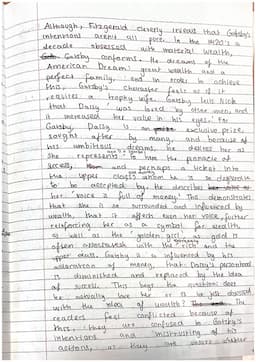 Although, Fitzgerald cleverly reveals that Gatsby's
intentions arent all pure. In the 1920's a
decade obsessed with material wealth,
Gatsby conforms. He dreams of the
'American Dream,' great wealth and a
perfect family, and in order to achieve
this, Gatsby's character feels as if it
requires a trophy wife. Gatsby tells Nick
that Daisy 'was loved by other men, and
it increased her value in his eyes.' For
Gatsby, Daisy is an exclusive prize,
sought after by many, and because of
his ambitious dreams, he desires her as
she represents to him the pinnacle of
success, and perhaps a ticket into
the upper class which he is so desperate
to be accepted by. He describes
her 'voice is full of money.' This demonstrates
that she is surrounded and influenced by
wealth, that it affects even her voice, further
reinforcing her as a symbol for wealth,
as well as the 'golden girl', as gold is
often associated with the rich and the
upper class. Gatsby is so influenced by his
of money, that Daisy's personhood
is diminished and replaced by the idea
of success. This begs the question: does
he actually love her or is he just obsessed
with the idea of wealth? The
readers feel conflicted because of
this, they are confused to Gatsby's
intentions and mistrusting of his
actions, as they are unsure whether